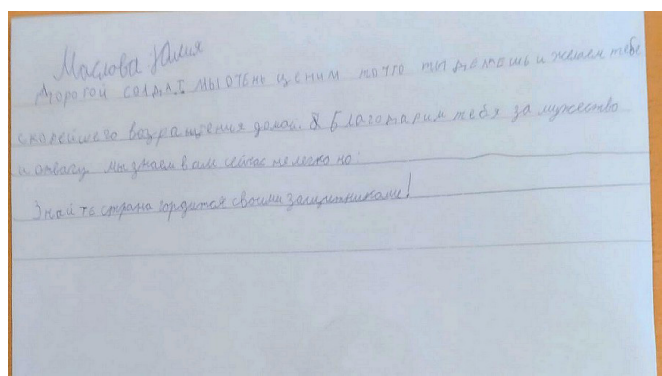 Маслова Юлия
Дорогой солдат мы очень ценим то что ты делаешь и желаем тебе
скорейшего возращения домой. Благодарим тебя за мужество
и отвагу мы знаем вам сейчас не легко но:
Знайть страна гордится своими защитниками!